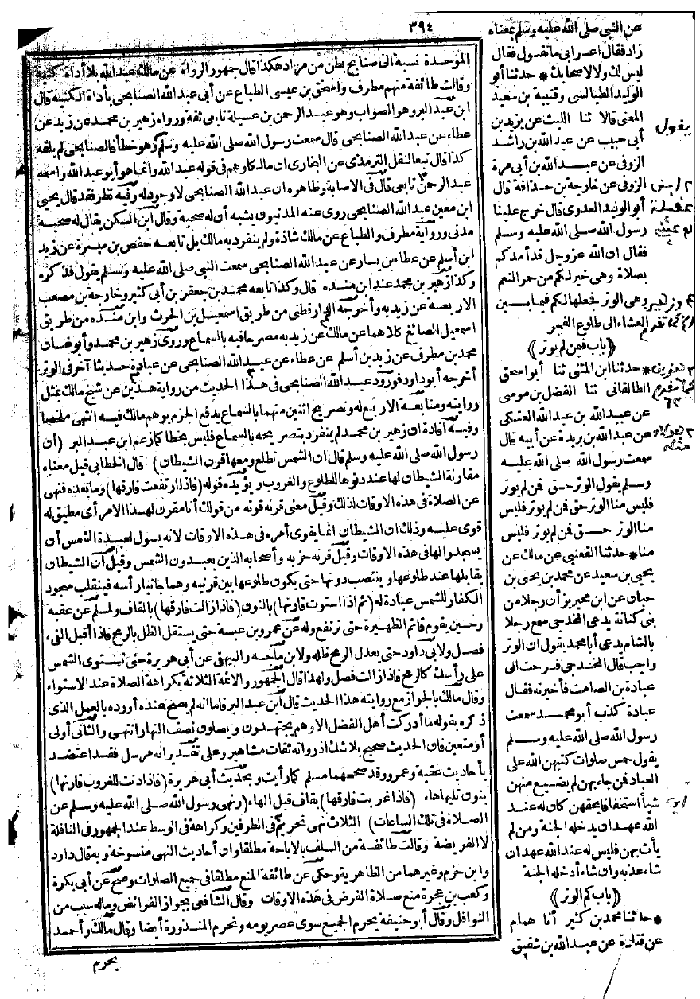 ٣٩٤
الموحدة نسبة الى صنابح بطن من مراد هكذا قال جمهور الرواة عن مالك عبد الله بلا أداة كنية
وقالت طائفة منهم مطرف واسحق بن عيسى الطباع عن أبى عبد الله الصنابحى بأداة الكنية قال
ابن عبد البر وهو الصواب وهو عبد الرحمن بن عسيلة تابعى ثقة ورواه زهير بن محمد عن زيد عن
عطاء عن عبد الله الصنابحى قال سمعت رسول الله صلى الله عليه وسلم وهو خطأ فالصنابحى لم يلقه
كذا قال تبعا لنقل الترمذى عن البخارى ان مالكا وهم فى قوله عبد الله وانما هو أبو عبد الله واسمه
عبد الرحمن تابعى قال فى الاصابة وظاهره ان عبد الله الصنابحى لا وجود له وفيه نظر فقد قال يحيى
ابن معين عبد الله الصنابحى روى عنه المدنيون يشبه أن له صحبة وقال ابن السكن يقال له صحبة
مدنى ورواية مطرف والطباع عن مالك شاذة ولم ينفرد به مالك بل تابعه حفص بن ميسرة عن زيد
ابن أسلم عن عطاء بن يسار عن عبد الله الصنابحى سمعت النبى صلى الله عليه وسلم يقول فذكره
وكذا زهير بن محمد عند ابن منده قال وكذا تابعه محمد بن جعفر بن أبى كثير وخارجة بن مصعب
الاربعة عن زيد به وأخرجه الدارقطنى من طريق اسمعيل بن الحرث وابن منده من طريق
اسمعيل الصائغ كلاهما عن مالك عن زيد به مصرحا فيه بالسماع وروى زهير بن محمد وأبو غسان
محمد بن مطرف عن زيد بن أسلم عن عطاء عن عبد الله الصنابحى عن عبادة حديثا آخر فى الوتر
أخرجه أبو داود فورود عبد الله الصنابحى فى هذا الحديث من رواية هذين عن شيخ مالك بمثل
روايته ومتابعة الاربعة له وتصريح اثنين منهما بالسماع يدفع الجزم بوهم مالك فيه انتهى ملخصا
وفيه افادة ان زهير بن محمد لم ينفرد بتصريحه بالسماع فليس بخطا كما زعم ابن عبد البر (أن
رسول الله صلى الله عليه وسلم قال ان الشمس تطلع ومعها قرن الشيطان) قال الخطابى قيل معناه
مقارنة الشيطان لها عند دنوها للطلوع والغروب ويؤيده قوله (فاذا ارتفعت فارقها) وما بعده فنهى
عن الصلاة فى هذه الاوقات لذلك وقيل معنى قرنه قوته من قولك أنا مقرن لهذا الامر أى مطيق له
قوى عليه وذلك ان الشيطان انما يقوى أمره فى هذه الاوقات لانه يسول لعبدة الشمس أن
يسجدوا لها فى هذه الاوقات وقيل قرنه حزبه وأصحابه الذين يعبدون الشمس وقيل أن الشيطان
يقابلها عند طلوعها وينتصب دونها حتى يكون طلوعها بين قرنيه وهما جانبا رأسه فينقلب سجود
الكفار للشمس عبادة له (ثم اذا استوت قارنها) بالنون (فاذا زالت فارقها) بالقاف ولمسلم عن عقبة
وحين يقوم قائم الظهيرة حتى ترتفع وله عن عمرو بن عبسة حتى يستقل الظل بالرمح فاذا أقبل الفىء
فصل ولابى داود حتى يعدل الرمح ظله ولابن ماجه والبيهقى عن أبى هريرة حتى تستوى الشمس
على رأسك كالرمح فاذا زالت فصل ولهذا قال الجمهور والائمة الثلاثة بكراهة الصلاة عند الاستواء
وقال مالك بالجواز مع روايته هذا الحديث قال ابن عبد البر فاما انه لم يصح عنده أو رده بالعمل الذى
ذكره بقوله ما أدركت أهل الفضل الا وهم يجتهدون ويصلون نصف النهار انتهى والثانى أولى
أو متعين فان الحديث صحيح بلا شك اذ رواته ثقات مشاهير وعلى تقدير انه مرسل فقد اعتضد
بأحاديث عقبة وعمرو وقد صححهما مسلم كما رأيت وبحديث أبى هريرة (فاذا دنت للغروب قارنها)
بنون تليها هاء (فاذا غربت فارقها) بقاف قبل الهاء (ونهى رسول الله صلى الله عليه وسلم عن
الصلاة فى تلك الساعات) الثلاث نهى تحريم فى الطرفين وكراهة فى الوسط عند الجمهور فى النافلة
لا الفريضة وقالت طائفة من السلف بالاباحة مطلقا وان أحاديث النهى منسوخة وبه قال داود
وابن حزم وغيرهما من الظاهرية وحكى عن طائفة المنع مطلقا فى جميع الصلوات وصح عن أبى بكرة
وكعب بن عجرة منع صلاة الفرض فى هذه الاوقات وقال الشافعى بجواز الفرائض وماله سبب من
النوافل وقال أبو حنيفة يحرم الجميع سوى عصر يومه وتحرم المنذورة أيضا وقال مالك وأحمد
يحرم
عن النبى صلى الله عليه وسلم بمعناه
زاد فقال اعرابى ما تقول فقال
ليس لك ولا لاصحابك * حدثنا أبو
الوليد الطيالسى وقتيبة بن سعيد
المعنى قالا ثنا الليث عن يزيد بن
أبى حبيب عن عبد الله بن راشد
الزوفى عن عبد الله بن أبى مرة
الزوفى عن خارجة بن حذافة قال
أبو الوليد العدوى قال خرج علينا
رسول الله صلى الله عليه وسلم
فقال ان الله عز وجل قد أمدكم
بصلاة وهى خير لكم من حمر النعم
وهى الوتر فجعلها لكم فيما بين
العشاء الى طلوع الفجر
(باب فيمن لم يوتر)
* حدثنا ابن المثنى ثنا أبو اسحق
الطالقانى ثنا الفضل بن موسى
عن عبيد الله بن عبد الله العتكى
عن عبد الله بن بريدة عن أبيه قال
سمعت رسول الله صلى الله عليه
وسلم يقول الوتر حق فمن لم يوتر
فليس منا الوتر حق فمن لم يوتر فليس
منا الوتر حق فمن لم يوتر فليس
منا * حدثنا القعنبى عن مالك عن
يحيى بن سعيد عن محمد بن يحيى بن
حبان عن ابن محيريز أن رجلا من
بنى كنانة يدعى المخدجى سمع رجلا
بالشام يدعى أبا محمد يقول ان الوتر
واجب قال المخدجى فرحت الى
عبادة بن الصامت فأخبرته فقال
عبادة كذب أبو محمد سمعت
رسول الله صلى الله عليه وسلم
يقول خمس صلوات كتبهن الله على
العباد فمن جاء بهن لم يضيع منهن
شيأ استخفافا بحقهن كان له عند
الله عهد أن يدخله الجنة ومن لم
يأت بهن فليس له عند الله عهد ان
شاء عذبه وان شاء أدخله الجنة
(باب كم الوتر)
* حدثنا محمد بن كثير أنا همام
عن قتادة عن عبد الله بن شقيق
يقول